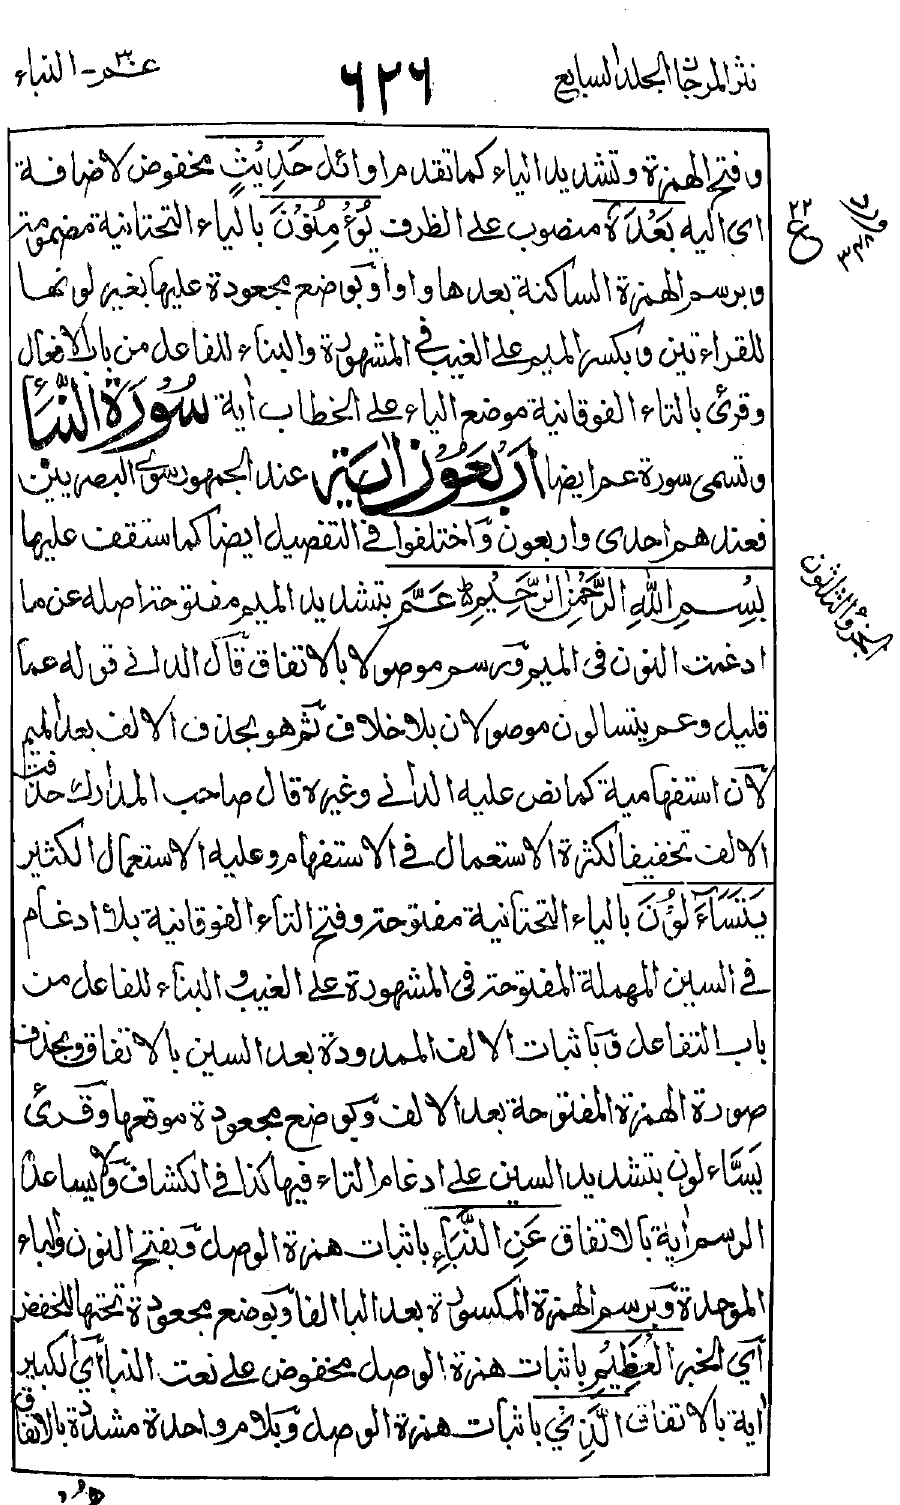 نثر المرجان الجلد السابع
٦٢٦
عـــم ٣٠ - النباء
وفتح الهمزة وتشديد الياء كما تقدم اوائل حَدِيْثٍ مخفوض لاضافة
اى اليه بَعْدَهٗ منصوب على الظرف يُؤْمِنُوْنَ بالياء التحتانية مضمومة
وبرسم الهمزة الساكنة بعدها واوا وبوضع مجعودة عليها بغير لونها
للقراءتين وبكسر الميم على الغيب فى المشهورة والبناء للفاعل من باب الافعال
وقرئ بالتاء الفوقانية موضع الياء على الخطاب اٰية سُوْرَةُ النَّبَأ
وتسمى سورة عم ايضا اَرْبَعُوْنَ اٰيَة عند الجمهور سوى البصريين
فعندهم احدى واربعون وَاختلفوا فى التفصيل ايضا كما ستقف عليها
بِسْــمِ اللّٰهِ الرَّحْمٰنِ الرَّحِيْمِ عَمَّ بتشديد الميم مفتوحة اصله عن ما
ادغمت النون فى الميم وَرسم موصولا بالاتفاق قَال الدانى قوله عما
قليل وعم يتسالون موصولان بلا خلاف ثَم هو بحذف الالف بعد الميم
لاَن استفهامية كما نص عليه الدانى وغيره قال صاحب المدارك حذفت
الالف تخفيفا لكثرة الاستعمال فى الاستفهام وعليه الاستعمال الكثير
يَتَسَآءَلُوْنَ بالياء التحتانية مفتوحة وفتح التاء الفوقانية بلا ادغام
فى السين المهملة المفتوحة فى المشهورة على الغيب والبناء للفاعل من
باب التفاعل وَباثبات الالف الممدودة بعد السين بالاتفاق وبحذف
صورة الهمزة المفتوحة بعد الالف وَبوضع مجعودة موقعها وَقرئ
يَسَّاءلون بتشديد السين على ادغام التاء فيها كذا فى الكشاف وَلا يساعده
الرسم اٰية بالاتفاق عَنِ النَّبَاِ باثبات همزة الوصل وَبفتح النون والباء
الموحدة وَبرسم الهمزة المكسورة بعد البا الفا وَبوضع مجعودة تحتها للخفض
اَى الخبر الْعَظِيْمِ باثبات همزة الوصل مخفوض على نعت النبا اَى الكبير
اٰية بالاتفاق الَّذِىْ باثبات همزة الوصل وَبلام واحدة مشددة بالاتفاق
٢٢
ع
الجزء الثلثون
هُوْ